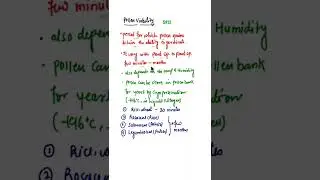 Pollen Viability
→ period for which pollen grains retain the ability to germinate
→ It vary with plant sp. to plant sp. few minutes – months
• also depends on the temp & Humidity
• Pollen can be store in pollen bank for years by Cryopreservation (-196°C, in liquid Nitrogen)
① Rice, wheat – 30 minutes
② Rosaceae (Rose)
③ Solanaceae (Potato)
④ Leguminaceae (Pulses)
few months
few minutes
• also depends
Humidity
• pollen can
bank
for years
(-196°C,
① Rice, w
② Rosac